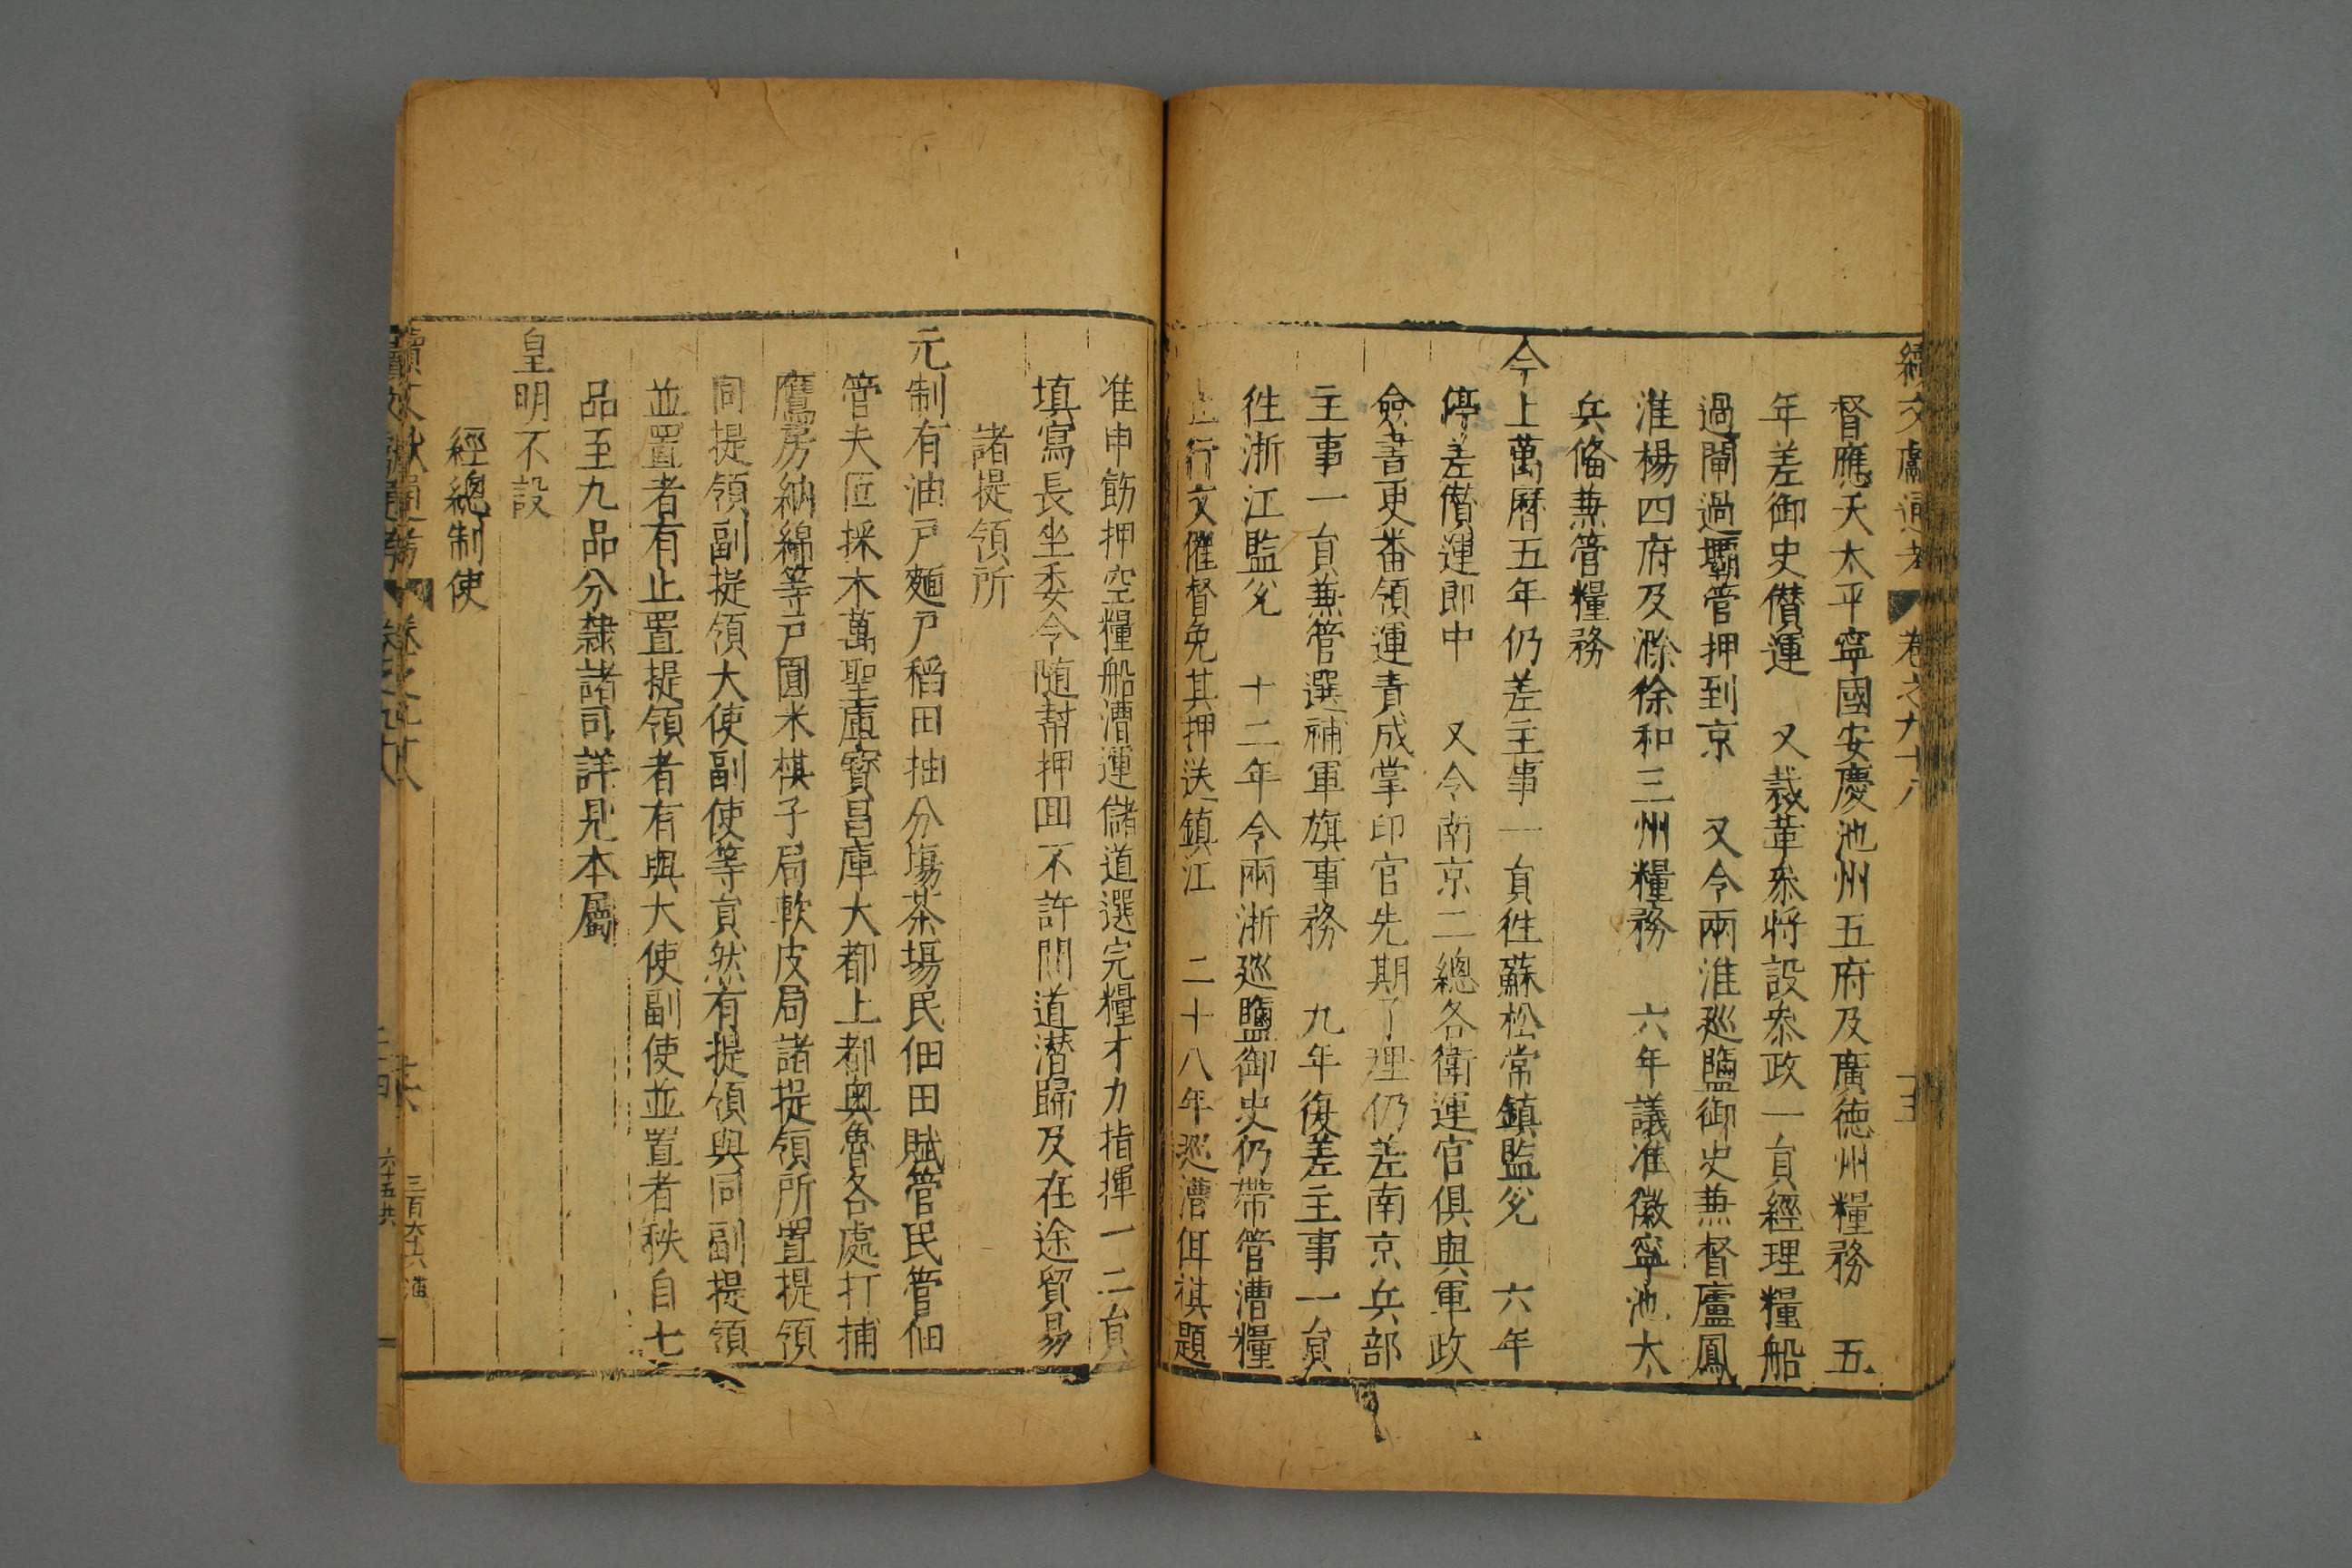 續文獻通考 卷之九十八
督應天太平寧國安慶池州五府及廣德州糧務 五
年差御史儹運 又裁革叅將設叅政一員經理糧船
過閘過壩管押到京 又令兩淮廵鹽御史兼督廬鳳
淮楊四府及滁徐和三州糧務 六年議准徽寧池太
兵俻兼管糧務
今上萬曆五年仍差主事一員徃蘇松常鎮監兌 六年
停差儹運郎中 又令南京二總各衛運官俱與軍政
僉書更畨領運責成掌印官先期了理仍差南京兵部
主事一員兼管選補軍旗事務 九年復差主事一員
徃浙江監兌 十二年令兩浙廵鹽御史仍帶管漕糧
行文催督免其押送鎮江 二十八年廵漕佴祺題
准申飭押空糧船漕運儲道選完糧才力指揮一二員
填寫長坐委令随幇押回不許間道潜歸及在途貿易
諸提領所
元制有油戸麵戸稻田抽分塲茶塲民佃田賦管民管佃
管夫匠採木萬聖庫寳昌庫大都上都奥魯各處打捕
鷹房納綿等戸圓米棋子局軟皮局諸提領所置提領
同提領副提領大使副使等員然有提領與同副提領
並置者有止置提領者有與大使副使並置者秩自七
品至九品分隸諸司詳見本屬
皇明不設
經總制使
續文獻通考 卷之九十八